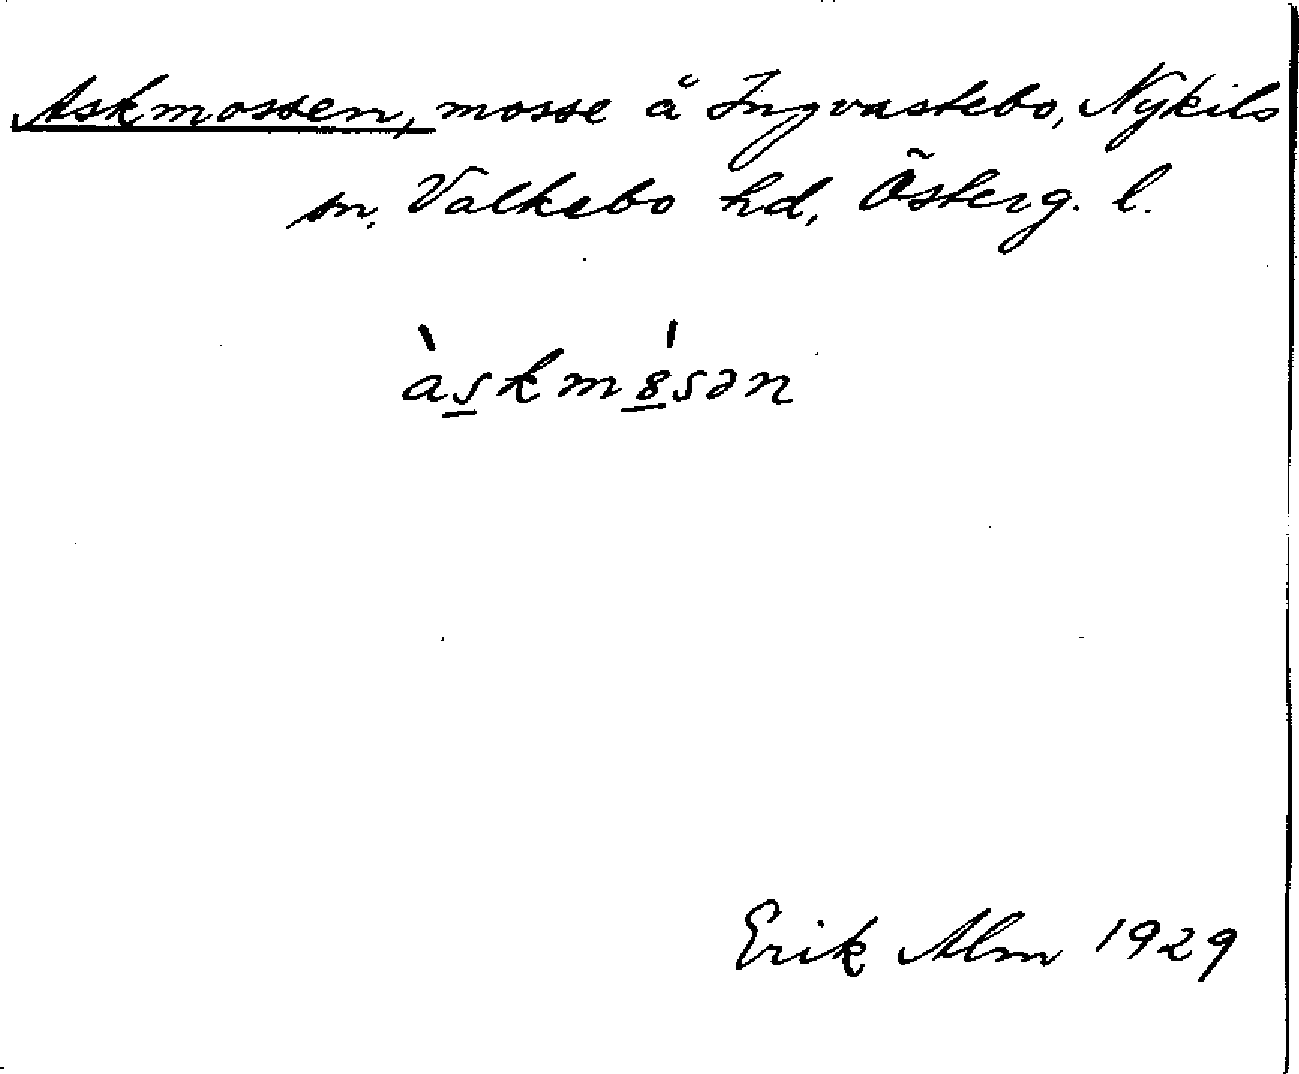 Askmossen, mosse å Ingvastebo, Nykils
sn. Valkebo hd, Österg. l.
àskmósən
Erik Alm 1929